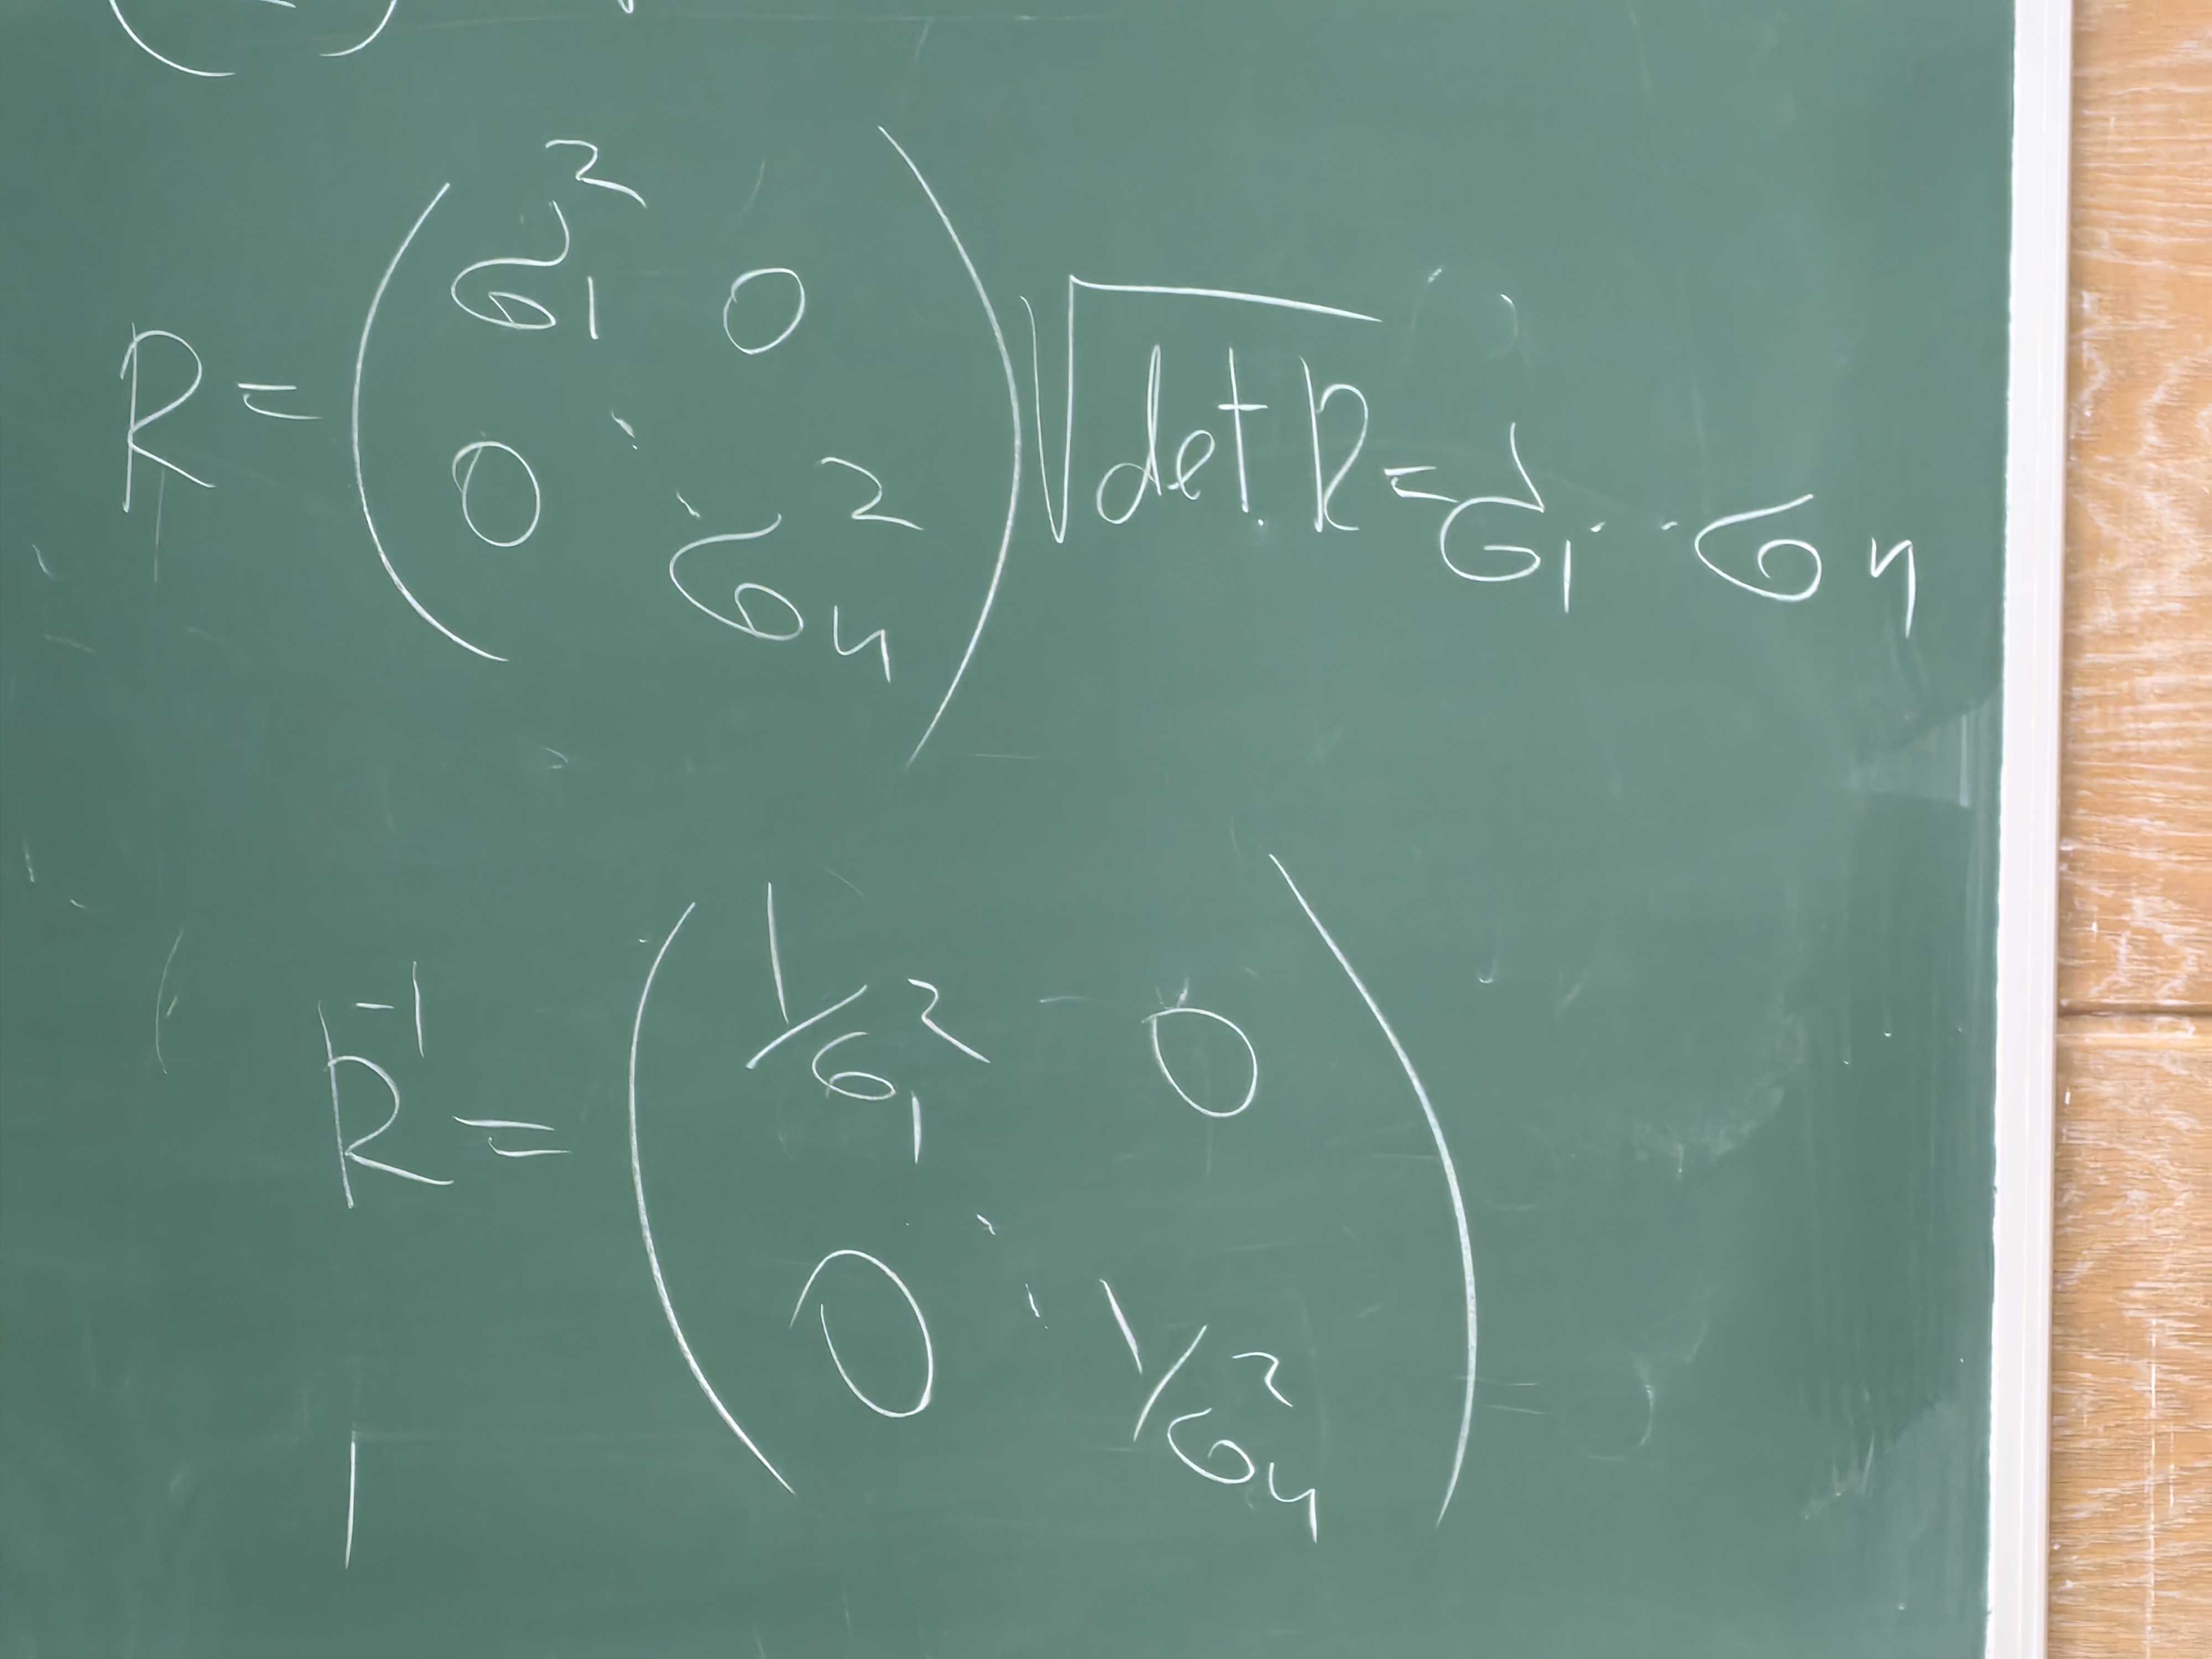 R = ( σ₁² 0
0 ⋱ σₙ² ) √det R = σ₁ ... σₙ
R⁻¹ = ( 1/σ₁² 0
0 ⋱ 1/σₙ² )